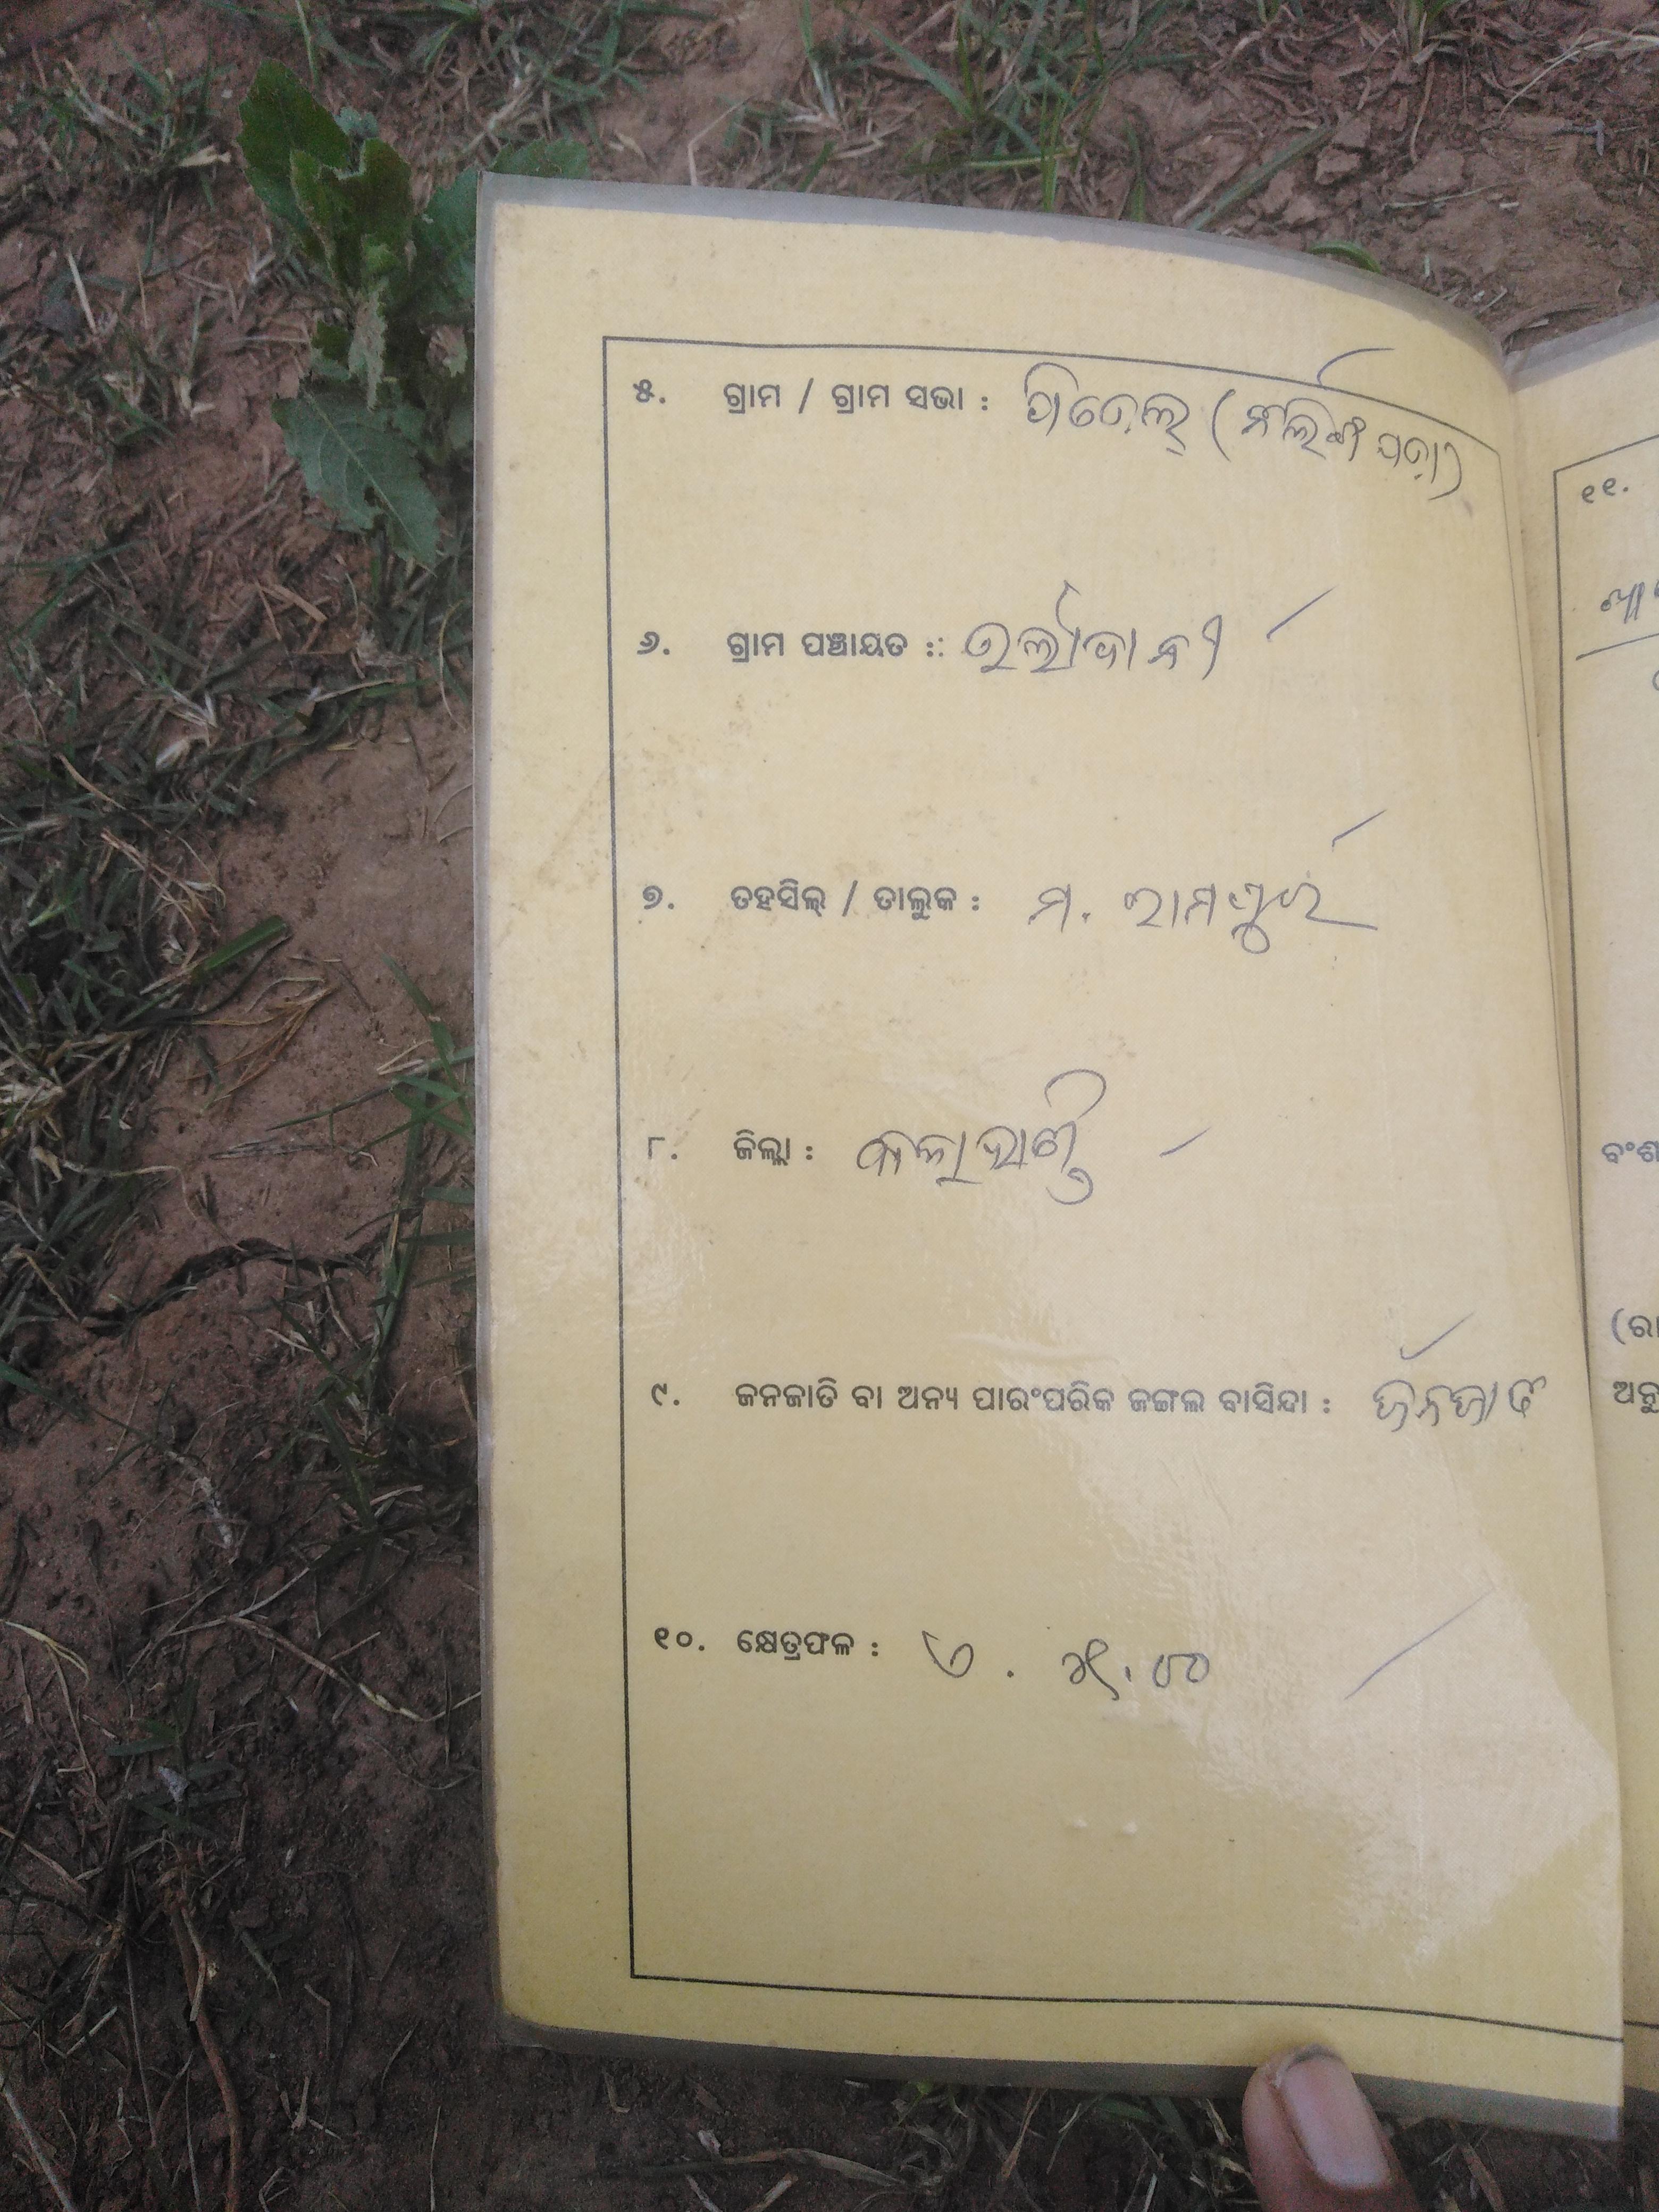 ୫. ଗ୍ରାମ / ଗ୍ରାମ ସଭା :
୬. ଗ୍ରାମ ପଞ୍ଚାୟତ ::
୭. ତହସିଲ୍ / ତାଲୁକ : ମ. ରାମପୁର
୮. ଜିଲ୍ଲା : କଳାହାଣ୍ଡି
୯. ଜନଜାତି ବା ଅନ୍ୟ ପାରଂପରିକ ଜଙ୍ଗଲ ବାସିନ୍ଦା : ଜନଜାତି
୧୦. କ୍ଷେତ୍ରଫଳ :
୧୧.
ବଂଶ
(ରା
ଅନୁ